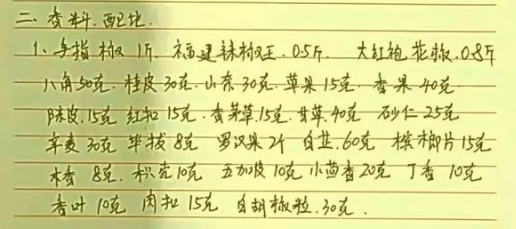 二、香料.配比.
1、手指椒 1斤. 福建辣椒王.0.5斤. 大红袍花椒.0.8斤
八角50克.桂皮30克.山奈30克.草果15克.香果40克
陈皮.15克 红扣15克.香茅草.15克.甘草.40克 砂仁25克
辛夷30克 毕拔8克 罗汉果2个 白芷.60克 槟榔片15克
木香 8克.积壳10克 五加皮10克小茴香20克 丁香 10克
香叶 10克 肉扣15克 白胡椒粒.30克.